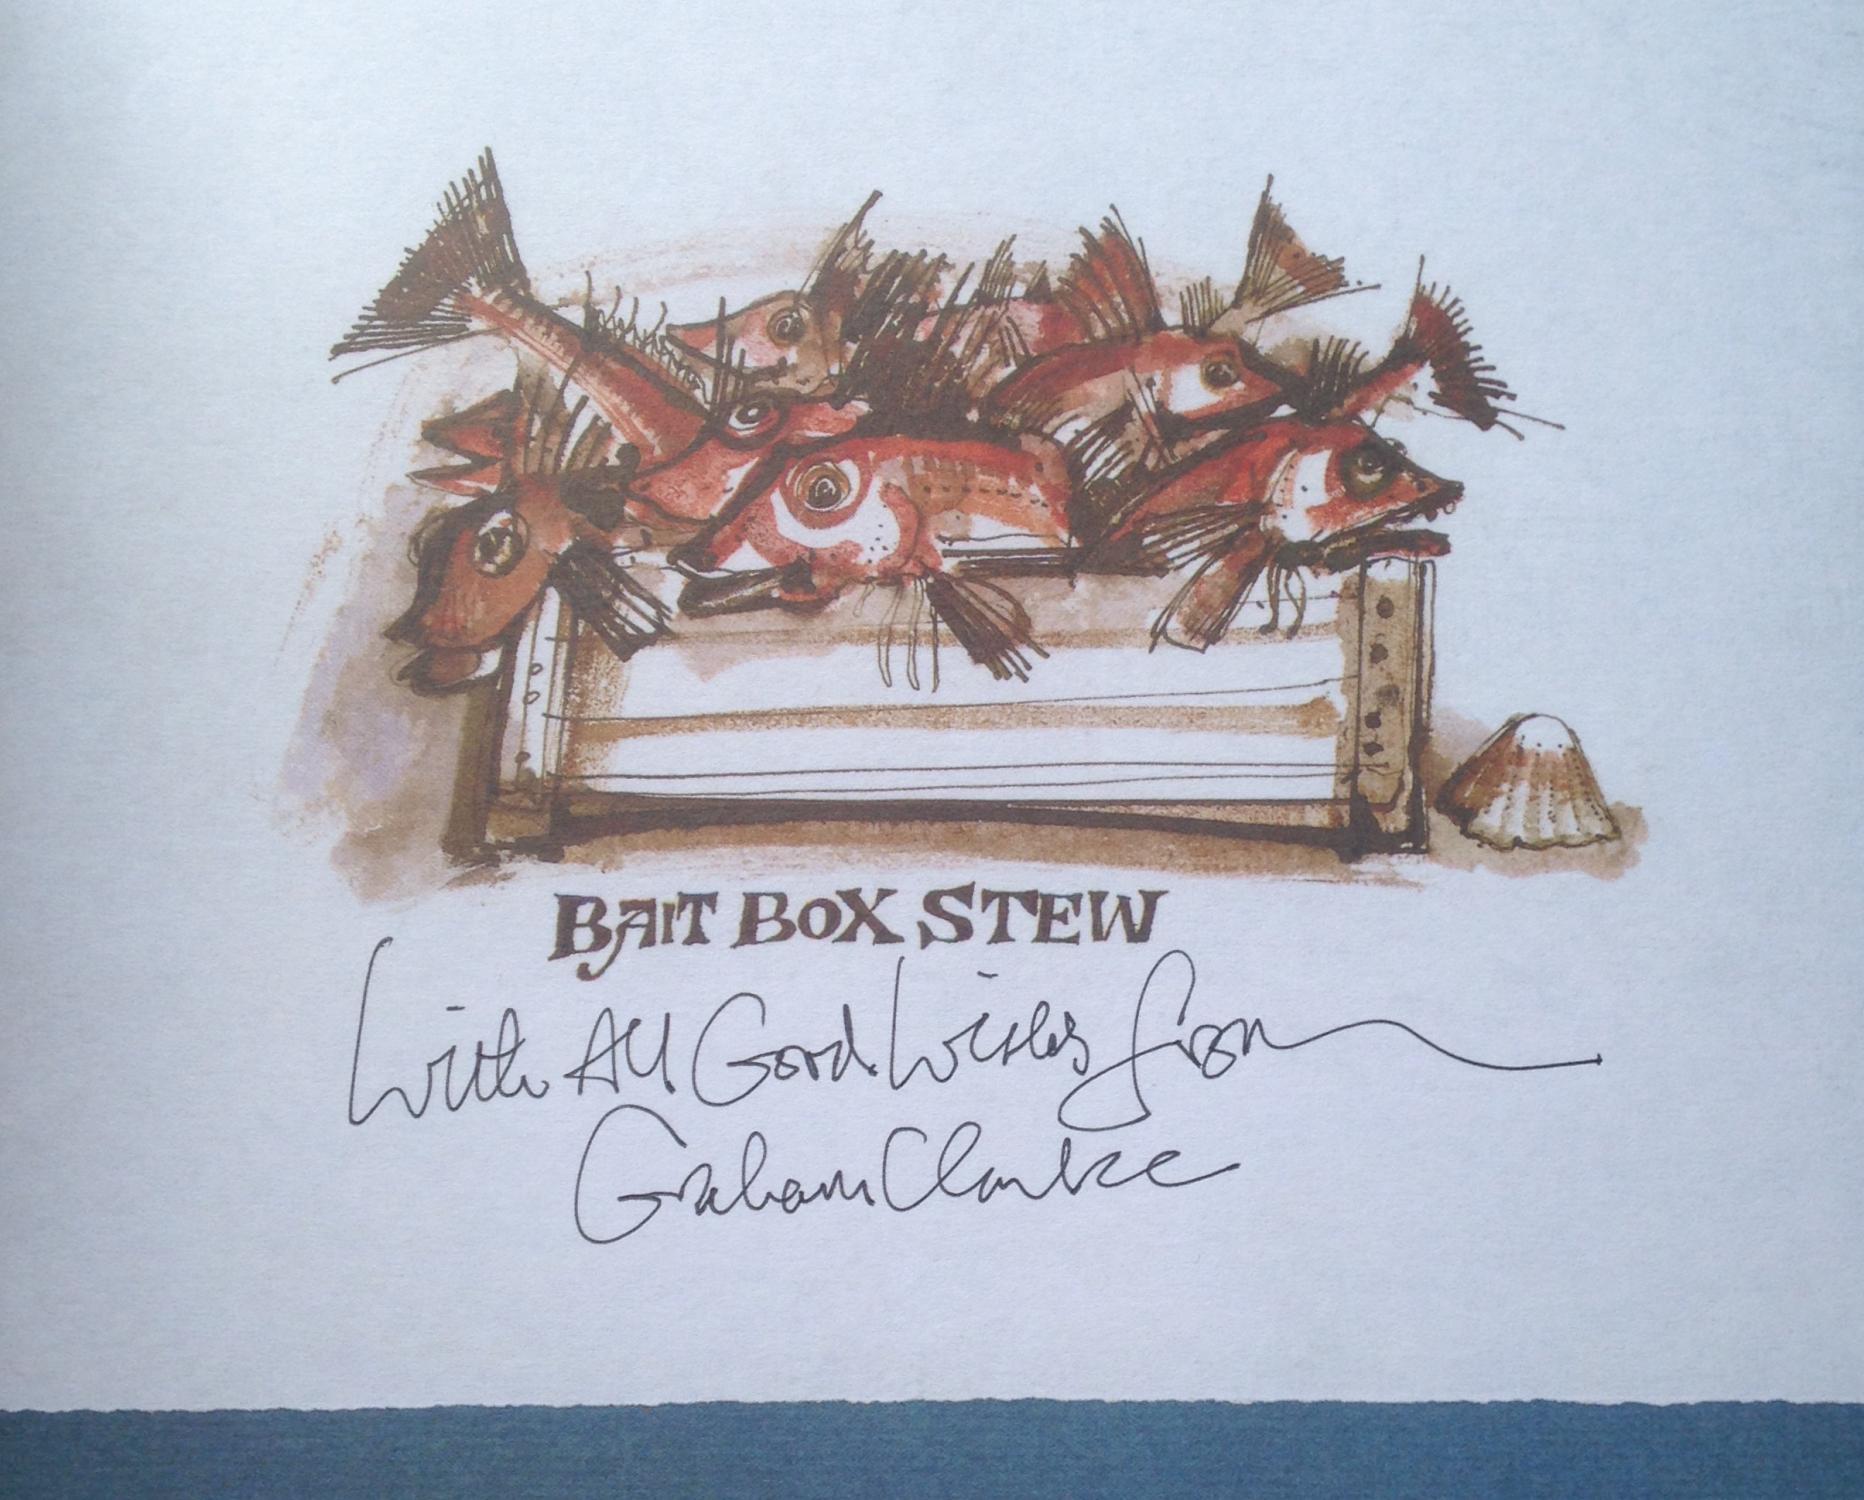 BAIT BOX STEW
With All Good Wishes from
Graham Clarke